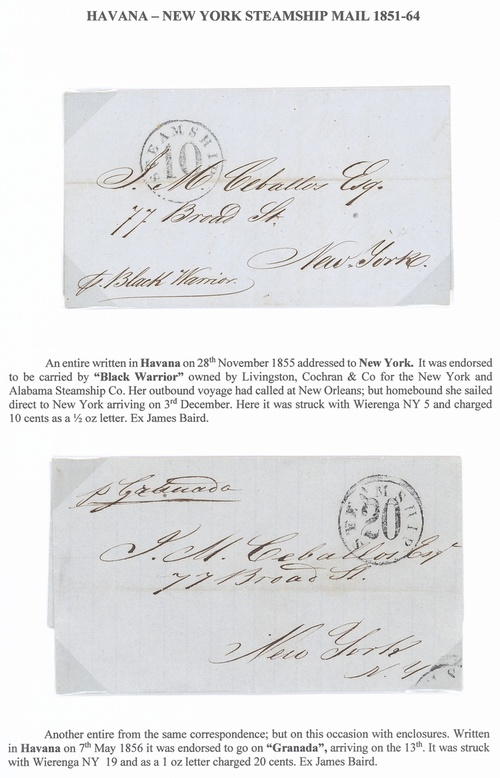 HAVANA – NEW YORK STEAMSHIP MAIL 1851-64
STEAMSHIP
10
J. M. Ceballos Esq.
77 Broad St.
New York.
p. Black Warrior.
An entire written in Havana on 28th November 1855 addressed to New York. It was endorsed
to be carried by “Black Warrior” owned by Livingston, Cochran & Co for the New York and
Alabama Steamship Co. Her outbound voyage had called at New Orleans; but homebound she sailed
direct to New York arriving on 3rd December. Here it was struck with Wierenga NY 5 and charged
10 cents as a ½ oz letter. Ex James Baird.
p Granada
STEAMSHIP
20
J. M. Ceballos Esqr
77 Broad St.
New York
N. Y
Another entire from the same correspondence; but on this occasion with enclosures. Written
in Havana on 7th May 1856 it was endorsed to go on “Granada”, arriving on the 13th. It was struck
with Wierenga NY 19 and as a 1 oz letter charged 20 cents. Ex James Baird.